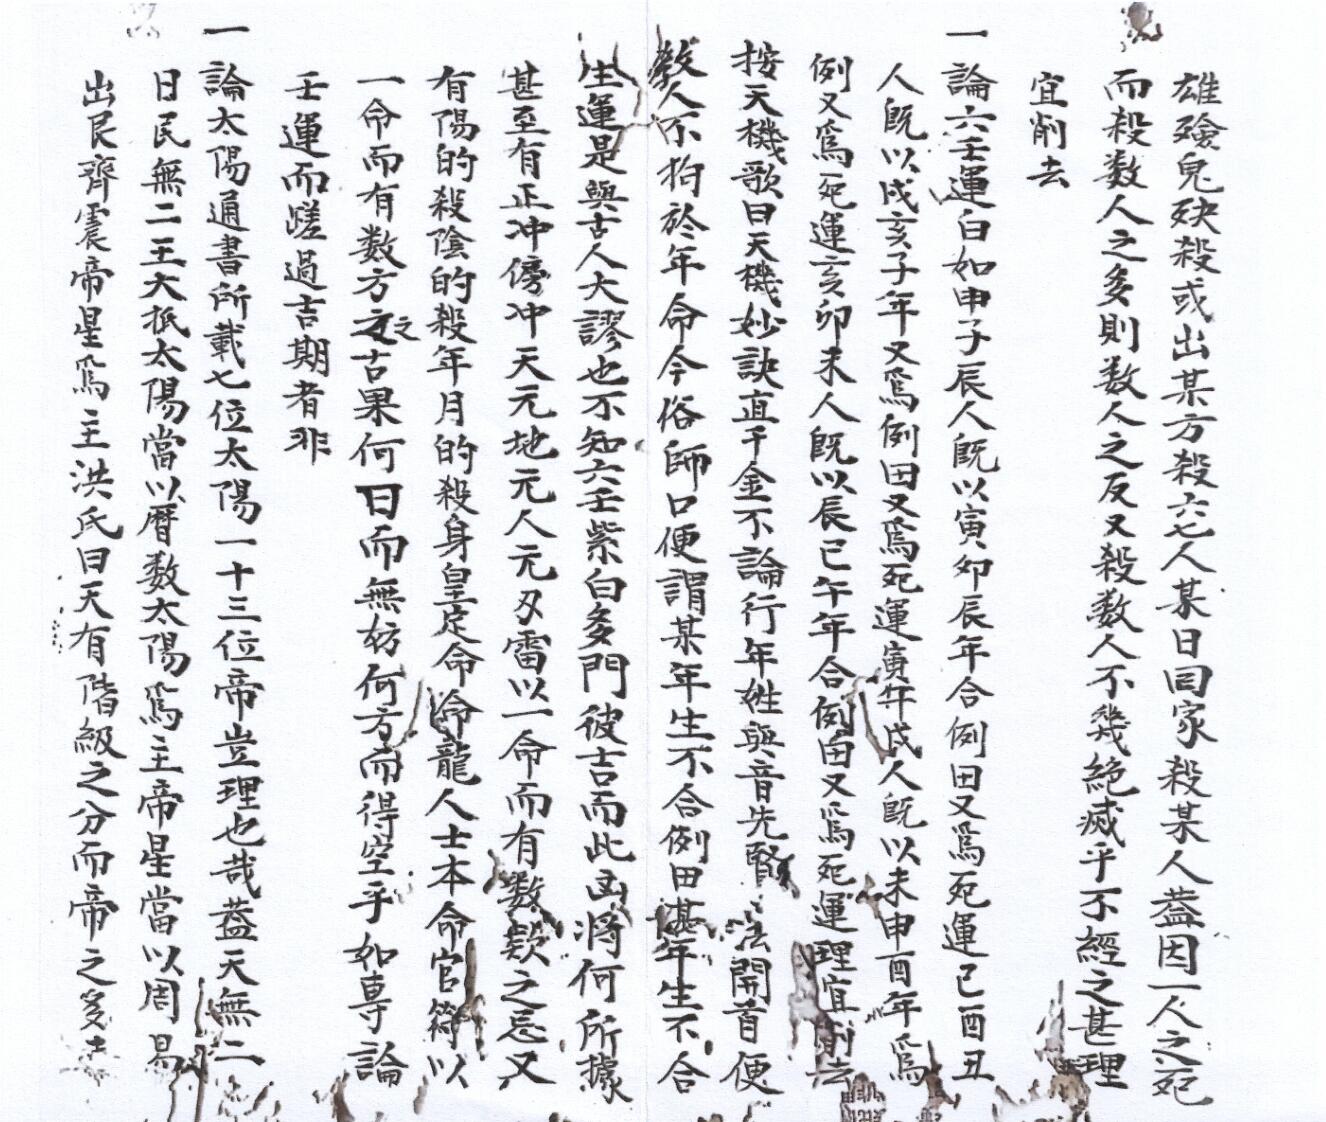 雄殮鬼殃殺或出某方殺六七人某日囘家殺某人葢因一人之死
而殺数人之多則数人之反又殺数人不幾絶滅乎不經之甚理
宜削去
一論六壬運白如申子辰人旣以寅卯辰年合例田又爲死運巳酉丑
人旣以戌亥子年又爲例田又爲死運寅午戌人旣以未申酉年爲
例又爲死運亥卯未人旣以辰巳午年合例田又爲死運理宜削去
按天機歌曰天機妙訣直千金不論行年姓與音先賢法開首便
教人不拘於年命今俗師口便謂某年生不合例田某年生不合
生運是與古人大謬也不知六壬紫白多門彼吉而此凶將何所據
甚至有正冲傍冲天元地元人元刃雷以一命而有数欵之忌又
有陽的殺陰的殺年月的殺身皇定命冷龍人士本命官符以
一命而有数方之古果何日而無妨何方而得空乎如專論
壬運而嗟過吉期者非
一論太陽通書所載七位太陽一十三位帝豈理也哉葢天無二
日民無二王大抵太陽當以曆数太陽爲主帝星當以周易
出艮齊震帝星爲主洪氏曰天有階級之分而帝之